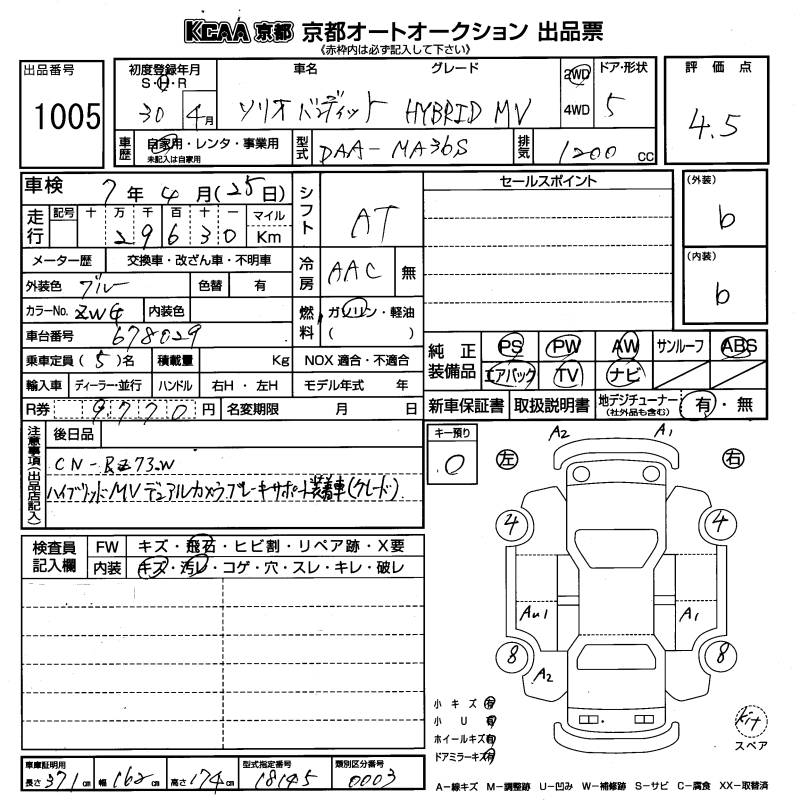 KCAA 京都 京都オートオークション 出品票
《赤枠内は必ず記入して下さい》
出品番号 1005
初度登録年月 S・H・R 30 4月
車名 グレード ソリオ バンディット HYBRID MV
2WD 4WD
ドア・形状 5
評価点 4.5
車歴 自家用・レンタ・事業用
未記入は自家用
型式 DAA-MA36S
排気 1200 CC
車検 7年4月(25日)
走行 記号 十 万 千 百 十 一 マイル
29630 Km
シフト AT
メーター歴 交換車・改ざん車・不明車
外装色 ブルー 色替 有
冷房 AAC 無
カラーNo. ZWG 内装色
車台番号 678029
燃料 ガソリン・軽油
( )
乗車定員(5)名 積載量 Kg NOX 適合・不適合
輸入車 ディーラー・並行 ハンドル 右H・左H モデル年式 年
R券 9770円 名変期限 月 日
セールスポイント
(外装) b
(内装) b
純正装備品 PS PW AW サンルーフ ABS
エアバック TV ナビ
新車保証書 取扱説明書 地デジチューナー (社外品も含む) 有・無
注意事項(出品店記入)
後日品
CN-RZ73W
ハイブリットMVデュアルカメラブレーキサポート装着車(グレード)
キー預り 0
検査員記入欄 FW キズ・飛石・ヒビ割・リペア跡・X要
内装 キズ・汚レ・コゲ・穴・スレ・キレ・破レ
A2 A1
左 右
4 4
AU1 A1
8 8
A2
小キズ 有
小U 有
ホイールキズ 有
ドアミラーキズ 有
Kit
スペア
車庫証明用 長さ 371cm 幅 162cm 高さ 174cm
型式指定番号 18145
類別区分番号 0003
A-線キズ M-調整跡 U-凹み W-補修跡 S-サビ C-腐食 XX-取替済